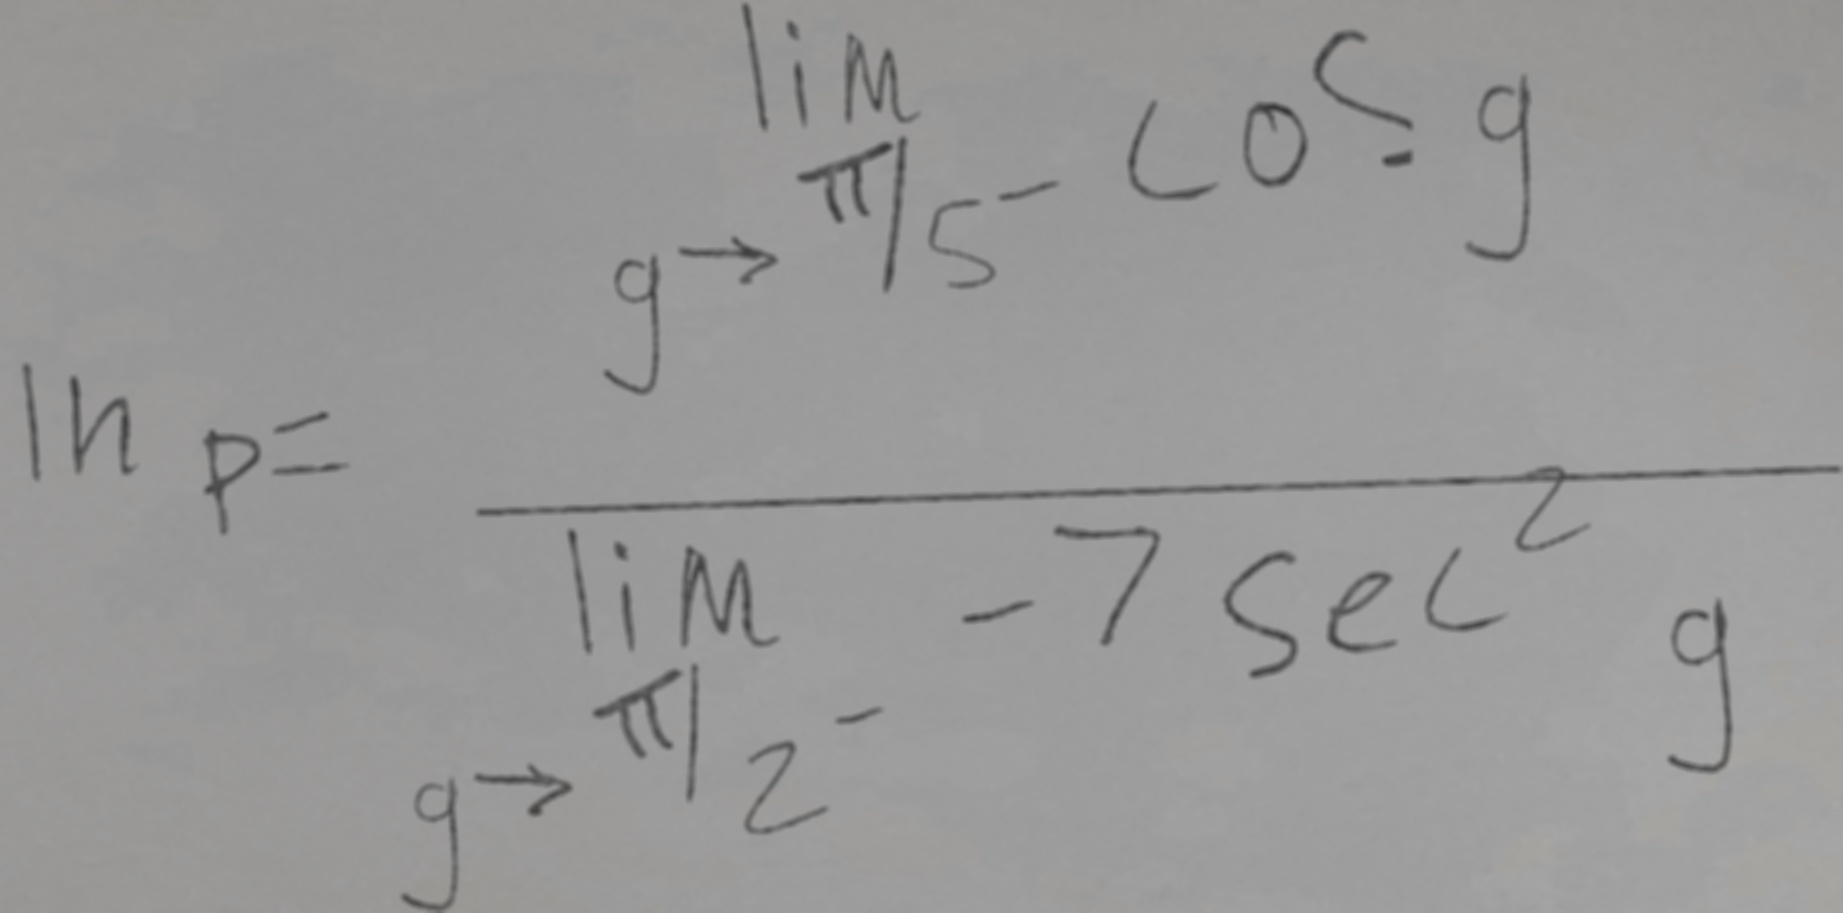 ln p = \frac{\lim_{g \to \pi/5^-} \cos g}{\lim_{g \to \pi/2^-} -7 \sec^2 g}